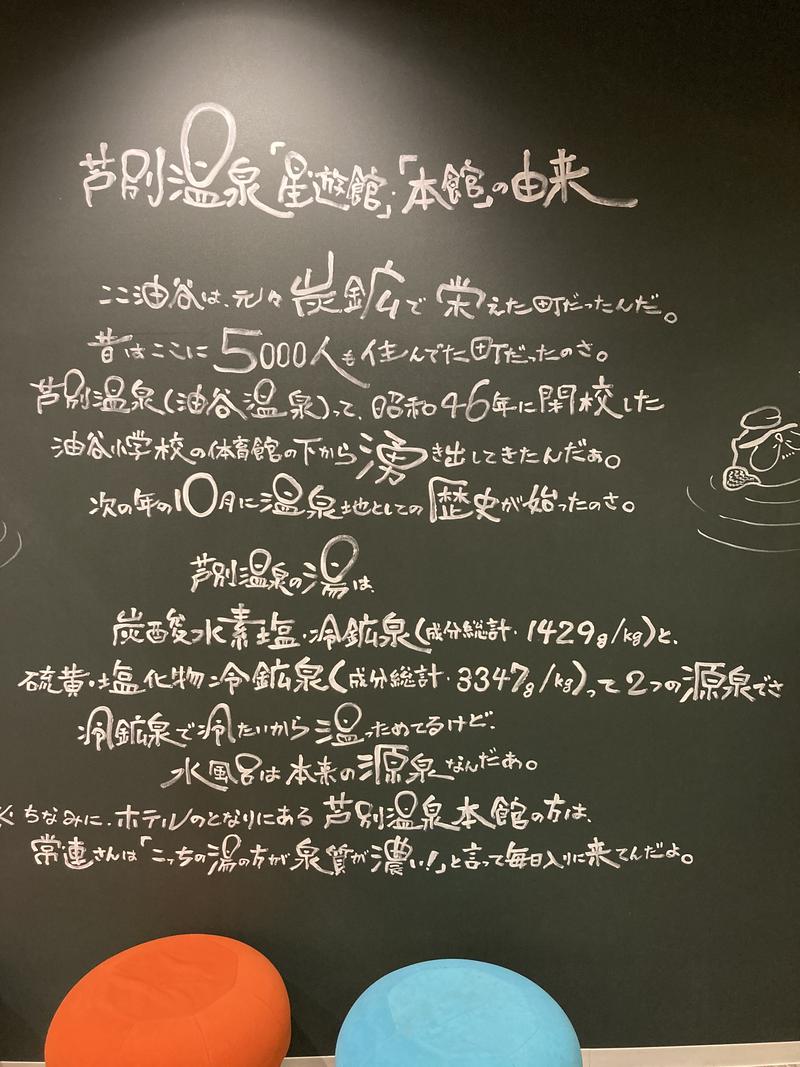 芦別温泉「星遊館」・「本館」の由来
ここ油谷は、元々炭鉱で栄えた町だったんだ。
昔はここに5000人も住んでた町だったのさ。
芦別温泉(油谷温泉)って、昭和46年に閉校した
油谷小学校の体育館の下から湧き出してきたんだぁ。
次の年の10月に温泉地としての歴史が始ったのさ。
芦別温泉の湯は、
炭酸水素塩・冷鉱泉(成分総計・1429g/kg)と、
硫黄・塩化物・冷鉱泉(成分総計・3347g/kg)って2つの源泉でさ
冷鉱泉で冷たいから温っためてるけど、
水風呂は本来の源泉なんだぁ。
※ちなみに、ホテルのとなりにある芦別温泉本館の方は、
常連さんは「こっちの湯の方が泉質が濃い!」と言って毎日入りに来てんだよ。